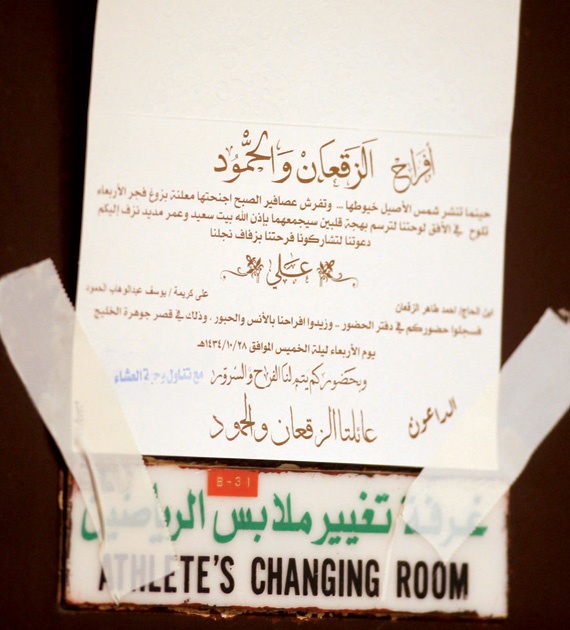 أفراح الزقعان والحمود
حينما تنشر شمس الأصيل خيوطها ... وتفرش عصافير الصبح اجنحتها معلنة بزوغ فجر الأربعاء
تلوح في الأفق لوحتنا لترسم بهجة قلبين سيجمعهما بإذن الله بيت سعيد وعمر مديد نزف إليكم
دعوتنا لتشاركونا فرحتنا بزفاف نجلنا
علي
ابن الحاج/ احمد طاهر الزقعان
على كريمة / يوسف عبدالوهاب الحمود
فسجلوا حضوركم في دفتر الحضور - وزيدوا افراحنا بالأنس والحبور . وذلك في قصر جوهرة الخليج
يوم الأربعاء ليلة الخميس الموافق ١٤٣٤/١٠/٢٨هـ
وبحضوركم يتم لنا الفراح والسرور
مع تناول العشاء
الداعون
عائلتا الزقعان والحمود
B-31
غرفة تغيير ملابس الرياضيين
ATHLETE'S CHANGING ROOM